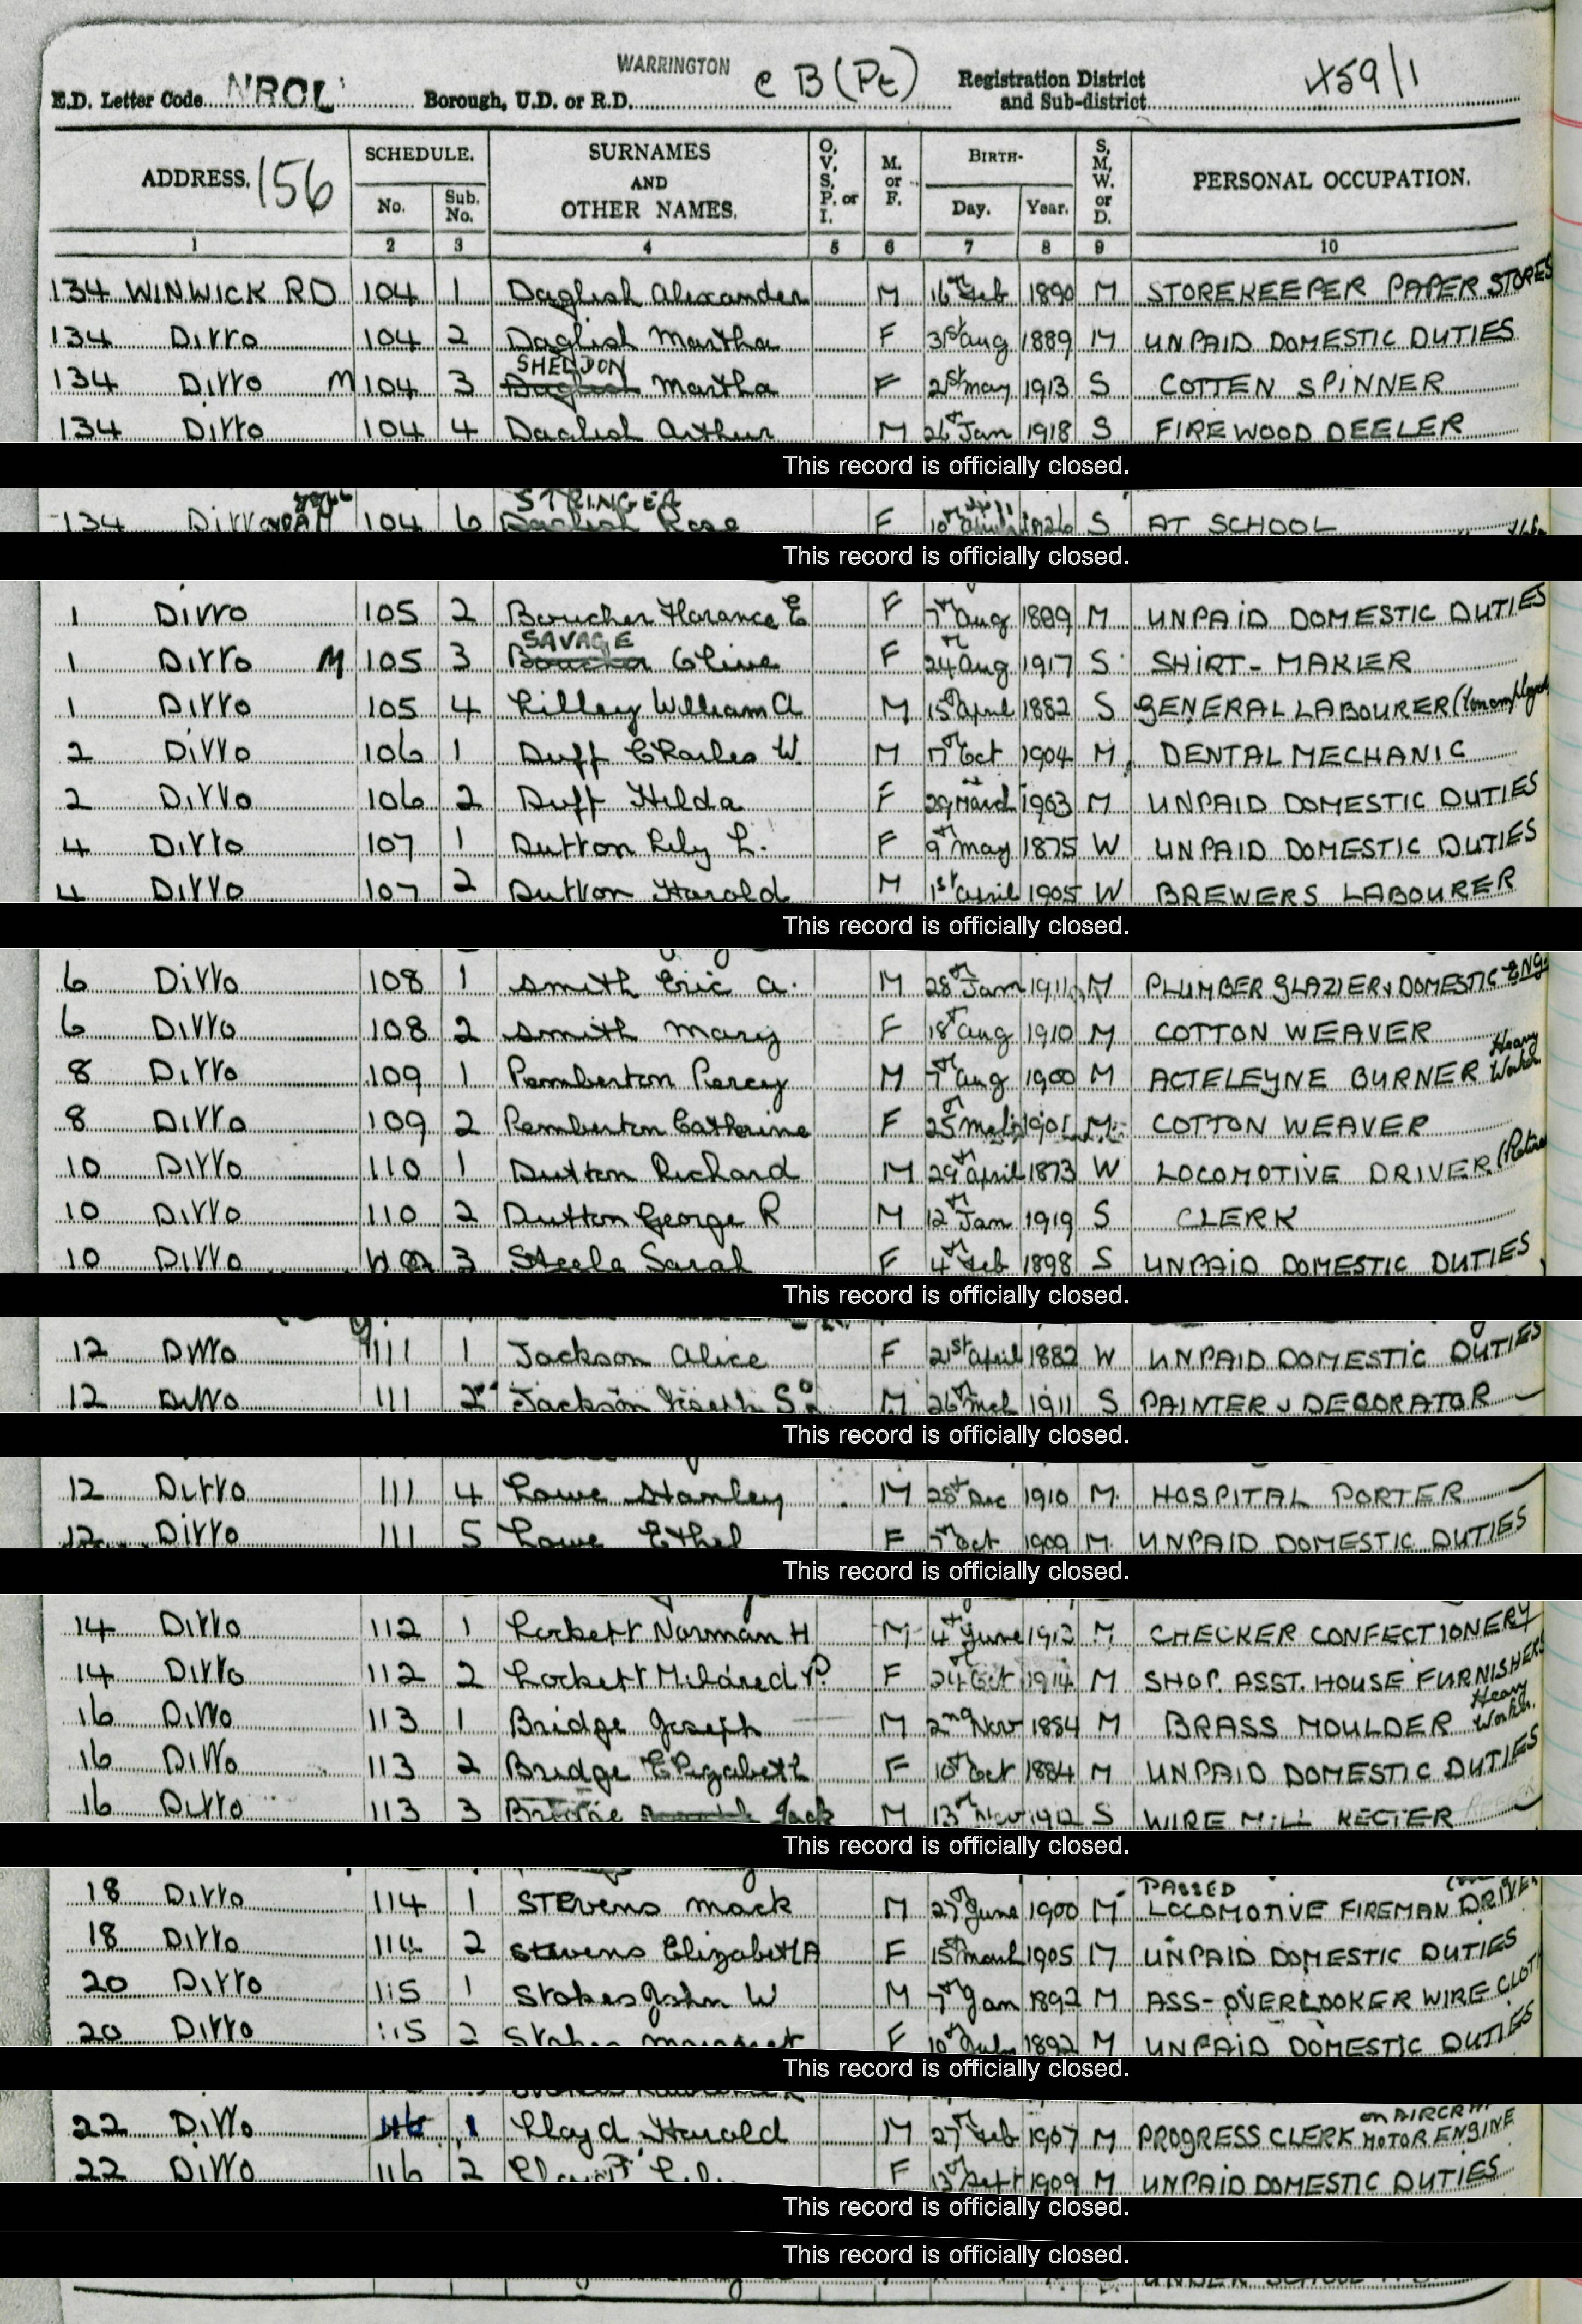 WARRINGTON
E.D. Letter Code NROL Borough, U.D. or R.D. C B (Pt) Registration District and Sub-district 459/1
ADDRESS. 156 SCHEDULE. SURNAMES AND OTHER NAMES. O, V, S, P. or I. M. or F. BIRTH- S, M, W. or D. PERSONAL OCCUPATION.
No. Sub. No. Day. Year.
1 2 3 4 5 6 7 8 9 10
134 WINWICK RD 104 1 Daglish Alexander M 16th Feb 1890 M STOREKEEPER PAPER STORES
134 Ditto 104 2 Daglish Martha F 31st Aug 1889 M UNPAID DOMESTIC DUTIES
SHELDON
134 Ditto M 104 3 Daglish Martha F 21st May 1913 S COTTEN SPINNER
134 Ditto 104 4 Daglish Arthur M 26th Jan 1918 S FIREWOOD DEELER
This record is officially closed.
STRINGER
134 Ditto 104 6 Daglish Rose F 10th 1926 S AT SCHOOL
This record is officially closed.
1 Ditto 105 2 Boucher Florance E F 7th Aug 1889 M UNPAID DOMESTIC DUTIES
SAVAGE
1 Ditto M 105 3 Boucher Olive F 24th Aug 1917 S SHIRT-MAKER
1 Ditto 105 4 Lilley William A M 15th April 1882 S GENERAL LABOURER (Unemployed
2 Ditto 106 1 Duff Charles W M 17th Oct 1904 M DENTAL MECHANIC
2 Ditto 106 2 Duff Hilda F 29 March 1903 M UNPAID DOMESTIC DUTIES
4 Ditto 107 1 Dutton Lily L. F 9th May 1875 W UNPAID DOMESTIC DUTIES
4 Ditto 107 2 Dutton Harold M 1st April 1905 W BREWERS LABOURER
This record is officially closed.
6 Ditto 108 1 Smith Eric A. M 28th Jan 1911 M PLUMBER GLAZIER & DOMESTIC ENG
6 Ditto 108 2 Smith Mary F 18th Aug 1910 M COTTON WEAVER
8 Ditto 109 1 Pemberton Percy M 7th Aug 1900 M ACTELEYNE BURNER Heavy Worker
8 Ditto 109 2 Pemberton Catherine F 25th 1901 M COTTON WEAVER
10 Ditto 110 1 Dutton Richard M 29th April 1873 W LOCOMOTIVE DRIVER (Retire
10 Ditto 110 2 Dutton George R M 12th Jan 1919 S CLERK
10 Ditto 110 3 Steele Sarah F 4th Feb 1898 S UNPAID DOMESTIC DUTIES
This record is officially closed.
12 Ditto 111 1 Jackson Alice F 21st April 1882 W UNPAID DOMESTIC DUTIES
12 Ditto 111 2 Jackson Joseph S M 26th Mch 1911 S PAINTER & DECORATOR
This record is officially closed.
12 Ditto 111 4 Lowe Stanley M 28th Dec 1910 M HOSPITAL PORTER
12 Ditto 111 5 Lowe Ethel F 7th Oct 1909 M UNPAID DOMESTIC DUTIES
This record is officially closed.
14 Ditto 112 1 Lockett Norman H M 4th June 1913 M CHECKER CONFECTIONERY
14 Ditto 112 2 Lockett Mildred P F 24th Oct 1914 M SHOP. ASST. HOUSE FURNISHERS
16 Ditto 113 1 Bridge Joseph M 2nd Nov 1884 M BRASS MOULDER Heavy Worker
16 Ditto 113 2 Bridge Elizabeth F 10th Oct 1884 M UNPAID DOMESTIC DUTIES
16 Ditto 113 3 Bridge Jack M 13th Nov 1912 S WIRE MILL
This record is officially closed.
PASSED
18 Ditto 114 1 Stevens Mack M 27th June 1900 M LOCOMOTIVE FIREMAN DRIVER
18 Ditto 114 2 Stevens Elizabeth A F 15th March 1905 M UNPAID DOMESTIC DUTIES
20 Ditto 115 1 Stokes John W M 7th Jan 1892 M ASS-OVERLOOKER WIRE CLOTH
20 Ditto 115 2 Stokes Margaret F 10th July 1892 M UNPAID DOMESTIC DUTIES
This record is officially closed.
22 Ditto 116 1 Lloyd Harold M 27th Feb 1907 M PROGRESS CLERK on AIRCRAFT MOTOR ENGINE
22 Ditto 116 2 Lloyd F 13th Sept 1909 M UNPAID DOMESTIC DUTIES
This record is officially closed.
This record is officially closed.